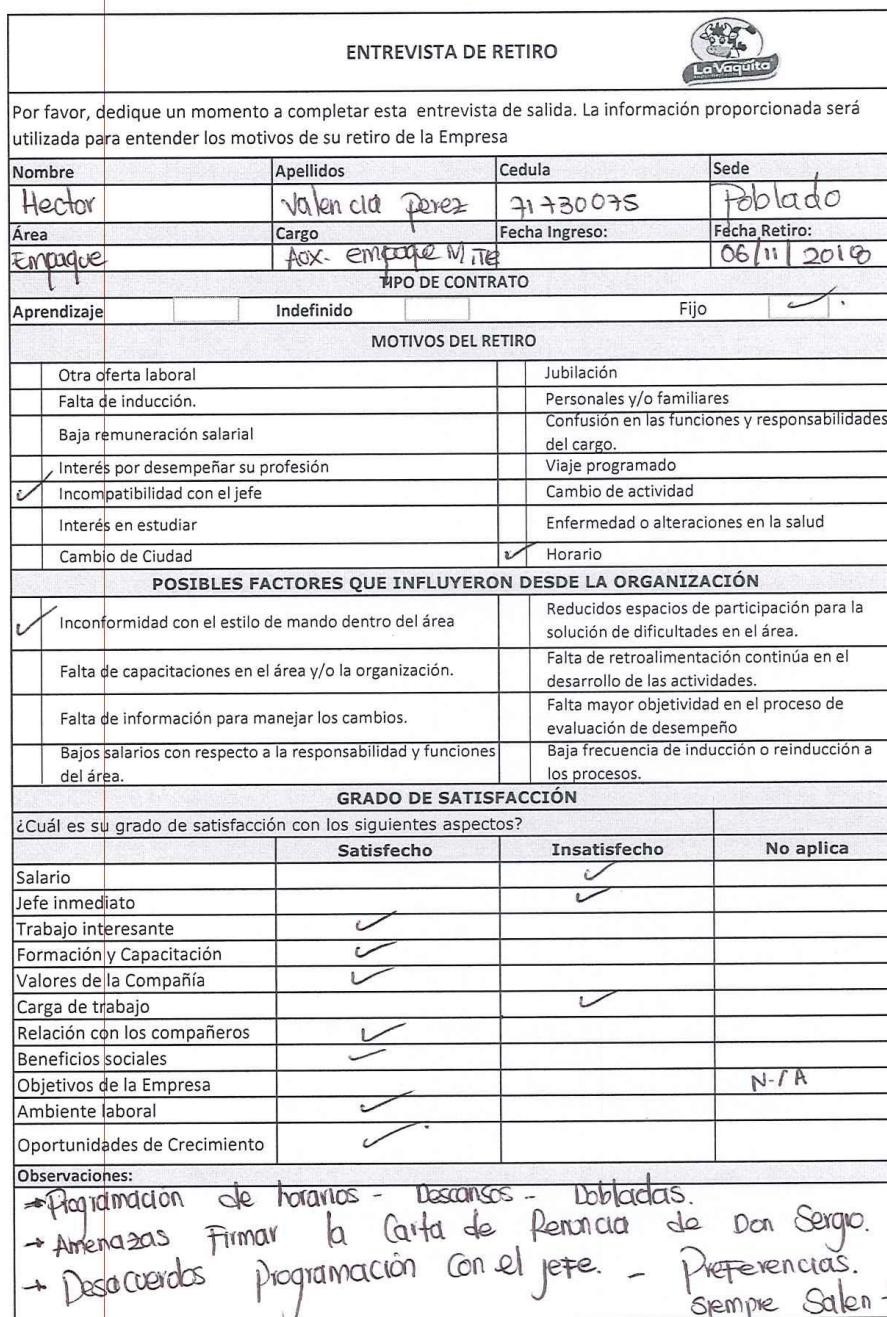 ENTREVISTA DE RETIRO
La Vaquita
Por favor, dedique un momento a completar esta entrevista de salida. La información proporcionada será
utilizada para entender los motivos de su retiro de la Empresa
Nombre Apellidos Cedula Sede
Hector Valencia perez 71730075 Poblado
Área Cargo Fecha Ingreso: Fecha Retiro:
Empaque Aux. empaque M.TE 06/11/2018
TIPO DE CONTRATO
Aprendizaje Indefinido Fijo ✓
MOTIVOS DEL RETIRO
Otra oferta laboral Jubilación
Falta de inducción. Personales y/o familiares
Baja remuneración salarial Confusión en las funciones y responsabilidades
del cargo.
Interés por desempeñar su profesión Viaje programado
✓ Incompatibilidad con el jefe Cambio de actividad
Interés en estudiar Enfermedad o alteraciones en la salud
Cambio de Ciudad ✓ Horario
POSIBLES FACTORES QUE INFLUYERON DESDE LA ORGANIZACIÓN
✓ Inconformidad con el estilo de mando dentro del área Reducidos espacios de participación para la
solución de dificultades en el área.
Falta de capacitaciones en el área y/o la organización. Falta de retroalimentación continúa en el
desarrollo de las actividades.
Falta de información para manejar los cambios. Falta mayor objetividad en el proceso de
evaluación de desempeño
Bajos salarios con respecto a la responsabilidad y funciones Baja frecuencia de inducción o reinducción a
del área. los procesos.
GRADO DE SATISFACCIÓN
¿Cuál es su grado de satisfacción con los siguientes aspectos?
Satisfecho Insatisfecho No aplica
Salario ✓
Jefe inmediato ✓
Trabajo interesante ✓
Formación y Capacitación ✓
Valores de la Compañía ✓
Carga de trabajo ✓
Relación con los compañeros ✓
Beneficios sociales ✓
Objetivos de la Empresa N/A
Ambiente laboral ✓
Oportunidades de Crecimiento ✓
Observaciones:
→ Programación de horarios - Descansos - Dobladas.
→ Amenazas Firmar la Carta de Renuncia de Don Sergio.
→ Desacuerdos programación con el jefe. - Preferencias.
siempre Salen -